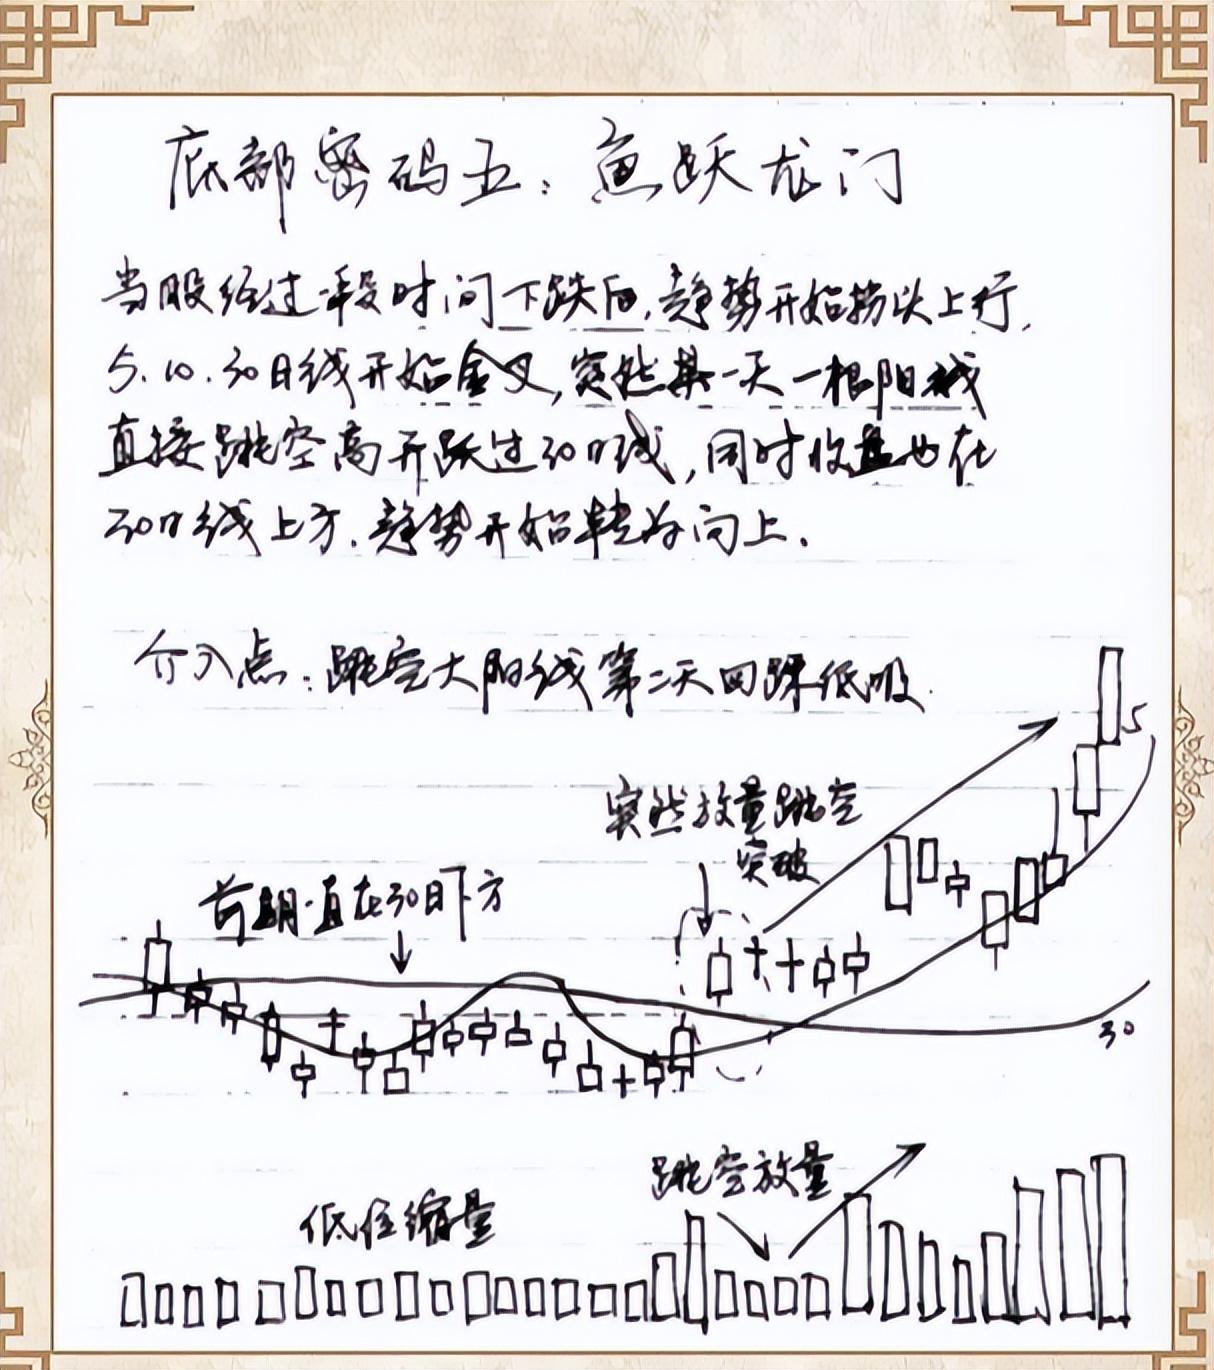 底部密码五：鱼跃龙门
当股经过一段时间下跌后，趋势开始拐头上行，
5.10.30日线开始金叉，突然某一天一根阳线
直接跳空高开跃过30日线，同时收盘也在
30日线上方，趋势开始转为向上。
介入点：跳空大阳线第二天回踩低吸
突然放量跳空
突破
前期一直在30日下方
5
30
跳空放量
低位缩量